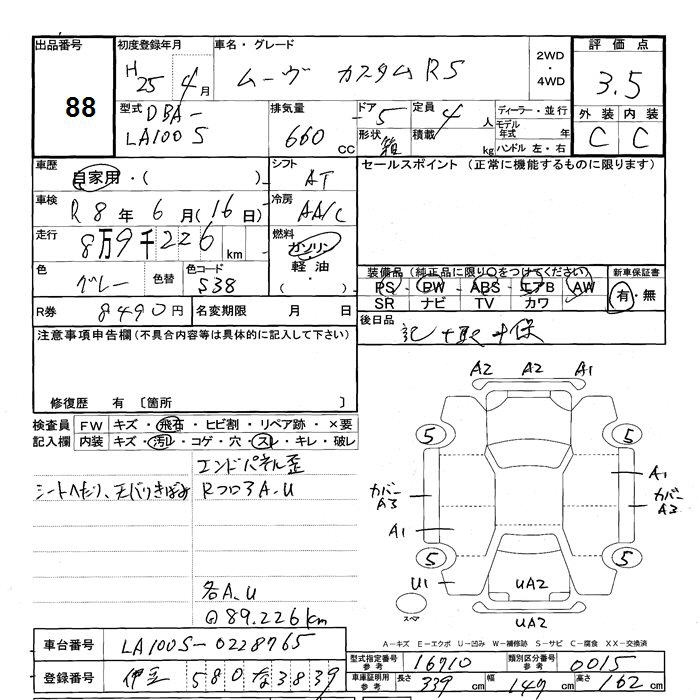 出品番号 初度登録年月 車名・グレード 2WD ・ 4WD 評価点
88 H25年4月 ムーヴ カスタムRS 3.5
型式 DBA-LA100S 排気量 660 CC ドア 5 形状 箱 定員 4 人 積載 kg ディーラー・並行 モデル年式 年 ハンドル 左・右 外装 内装
C C
車歴 自家用・( ) シフト AT セールスポイント (正常に機能するものに限ります)
車検 R8年6月(16日) 冷房 AA/C
走行 8万9千226km 燃料 ガソリン・軽油・( )
色 グレー 色替 色コード S38
装備品 (純正品に限り○をつけてください) 新車保証書
PS PW ABS エアB AW 有・無
SR ナビ TV カワ
R券 8490円 名変期限 月 日 後日品 記+取+保
注意事項申告欄(不具合内容等は具体的に記入して下さい)
修復歴 有 〔箇所 〕
検査員記入欄 FW キズ・飛石・ヒビ割・リペア跡・×要
内装 キズ・汚レ・コゲ・穴・スレ・キレ・破レ
エンドパネル歪
シートへたり、天バリきばみ RフロアA.U
各A.U
◎89.226km
A2 A2 A1
5 5
A1
カバーA3 カバーA3
A1
5 5
U1 UA2
スペア UA2
A−キズ E−エクボ U−凹み W−補修跡 S−サビ C−腐食 XX−交換済
車台番号 LA100S-0228765
型式指定番号 参考 16710 類別区分番号 参考 0015
登録番号 伊豆 580 な 3839
車庫証明用 参考 長さ 339 cm 幅 147 cm 高さ 162 cm